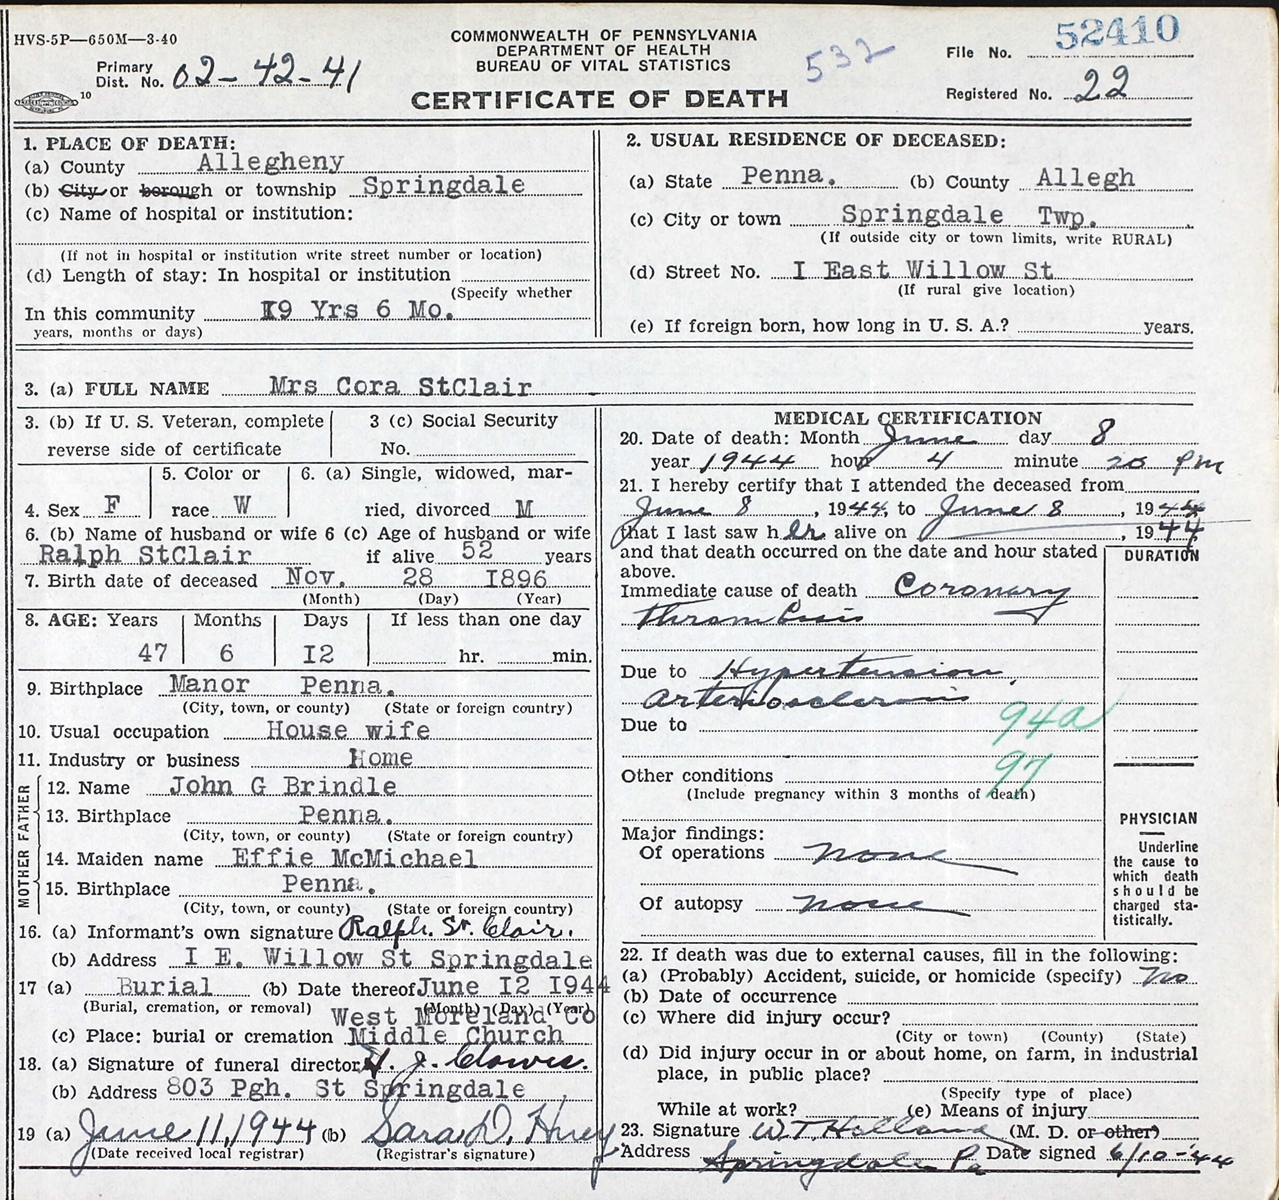 HVS-5P—650M—3-40
COMMONWEALTH OF PENNSYLVANIA
DEPARTMENT OF HEALTH
BUREAU OF VITAL STATISTICS
532
File No. 52410
Primary Dist. No. 02-42-41
Registered No. 22
10
CERTIFICATE OF DEATH
1. PLACE OF DEATH:
(a) County Allegheny
(b) City or borough or township Springdale
(c) Name of hospital or institution:
(If not in hospital or institution write street number or location)
(d) Length of stay: In hospital or institution
(Specify whether
In this community I9 Yrs 6 Mo.
years, months or days)
2. USUAL RESIDENCE OF DECEASED:
(a) State Penna. (b) County Allegh
(c) City or town Springdale Twp.
(If outside city or town limits, write RURAL)
(d) Street No. I East Willow St
(If rural give location)
(e) If foreign born, how long in U. S. A.? years.
3. (a) FULL NAME Mrs Cora StClair
3. (b) If U. S. Veteran, complete reverse side of certificate
3 (c) Social Security No.
4. Sex F
5. Color or race W
6. (a) Single, widowed, married, divorced M
6. (b) Name of husband or wife Ralph StClair
6 (c) Age of husband or wife if alive 52 years
7. Birth date of deceased Nov. 28 I896
(Month) (Day) (Year)
8. AGE: Years Months Days If less than one day
47 6 I2 hr. min.
9. Birthplace Manor Penna.
(City, town, or county) (State or foreign country)
10. Usual occupation House wife
11. Industry or business Home
FATHER
12. Name John G Brindle
13. Birthplace Penna.
(City, town, or county) (State or foreign country)
MOTHER
14. Maiden name Effie McMichael
15. Birthplace Penna.
(City, town, or county) (State or foreign country)
16. (a) Informant's own signature Ralph. St. Clair.
(b) Address I E. Willow St Springdale
17 (a) Burial (b) Date thereof June I2 I944
(Burial, cremation, or removal) (Month) (Day) (Year)
West Moreland Co
(c) Place: burial or cremation Middle Church
18. (a) Signature of funeral director J.
(b) Address 803 Pgh. St Springdale
19 (a) June 11, 1944 (b) Sara D. Huey
(Date received local registrar) (Registrar's signature)
MEDICAL CERTIFICATION
20. Date of death: Month June day 8
year 1944 hour 4 minute 20 PM
21. I hereby certify that I attended the deceased from
June 8, 1944, to June 8, 1944
that I last saw her alive on , 1944
and that death occurred on the date and hour stated
above.
DURATION
Immediate cause of death Coronary
Thrombosis
Due to Hypertension,
Arteriosclerosis
Due to
94a
97
Other conditions
(Include pregnancy within 3 months of death)
Major findings:
Of operations none
Of autopsy none
PHYSICIAN
Underline
the cause to
which death
should be
charged sta-
tistically.
22. If death was due to external causes, fill in the following:
(a) (Probably) Accident, suicide, or homicide (specify) no
(b) Date of occurrence
(c) Where did injury occur?
(City or town) (County) (State)
(d) Did injury occur in or about home, on farm, in industrial
place, in public place?
(Specify type of place)
While at work? (e) Means of injury
23. Signature W T Holland (M. D. or other)
Address Springdale Pa Date signed 6/10-44